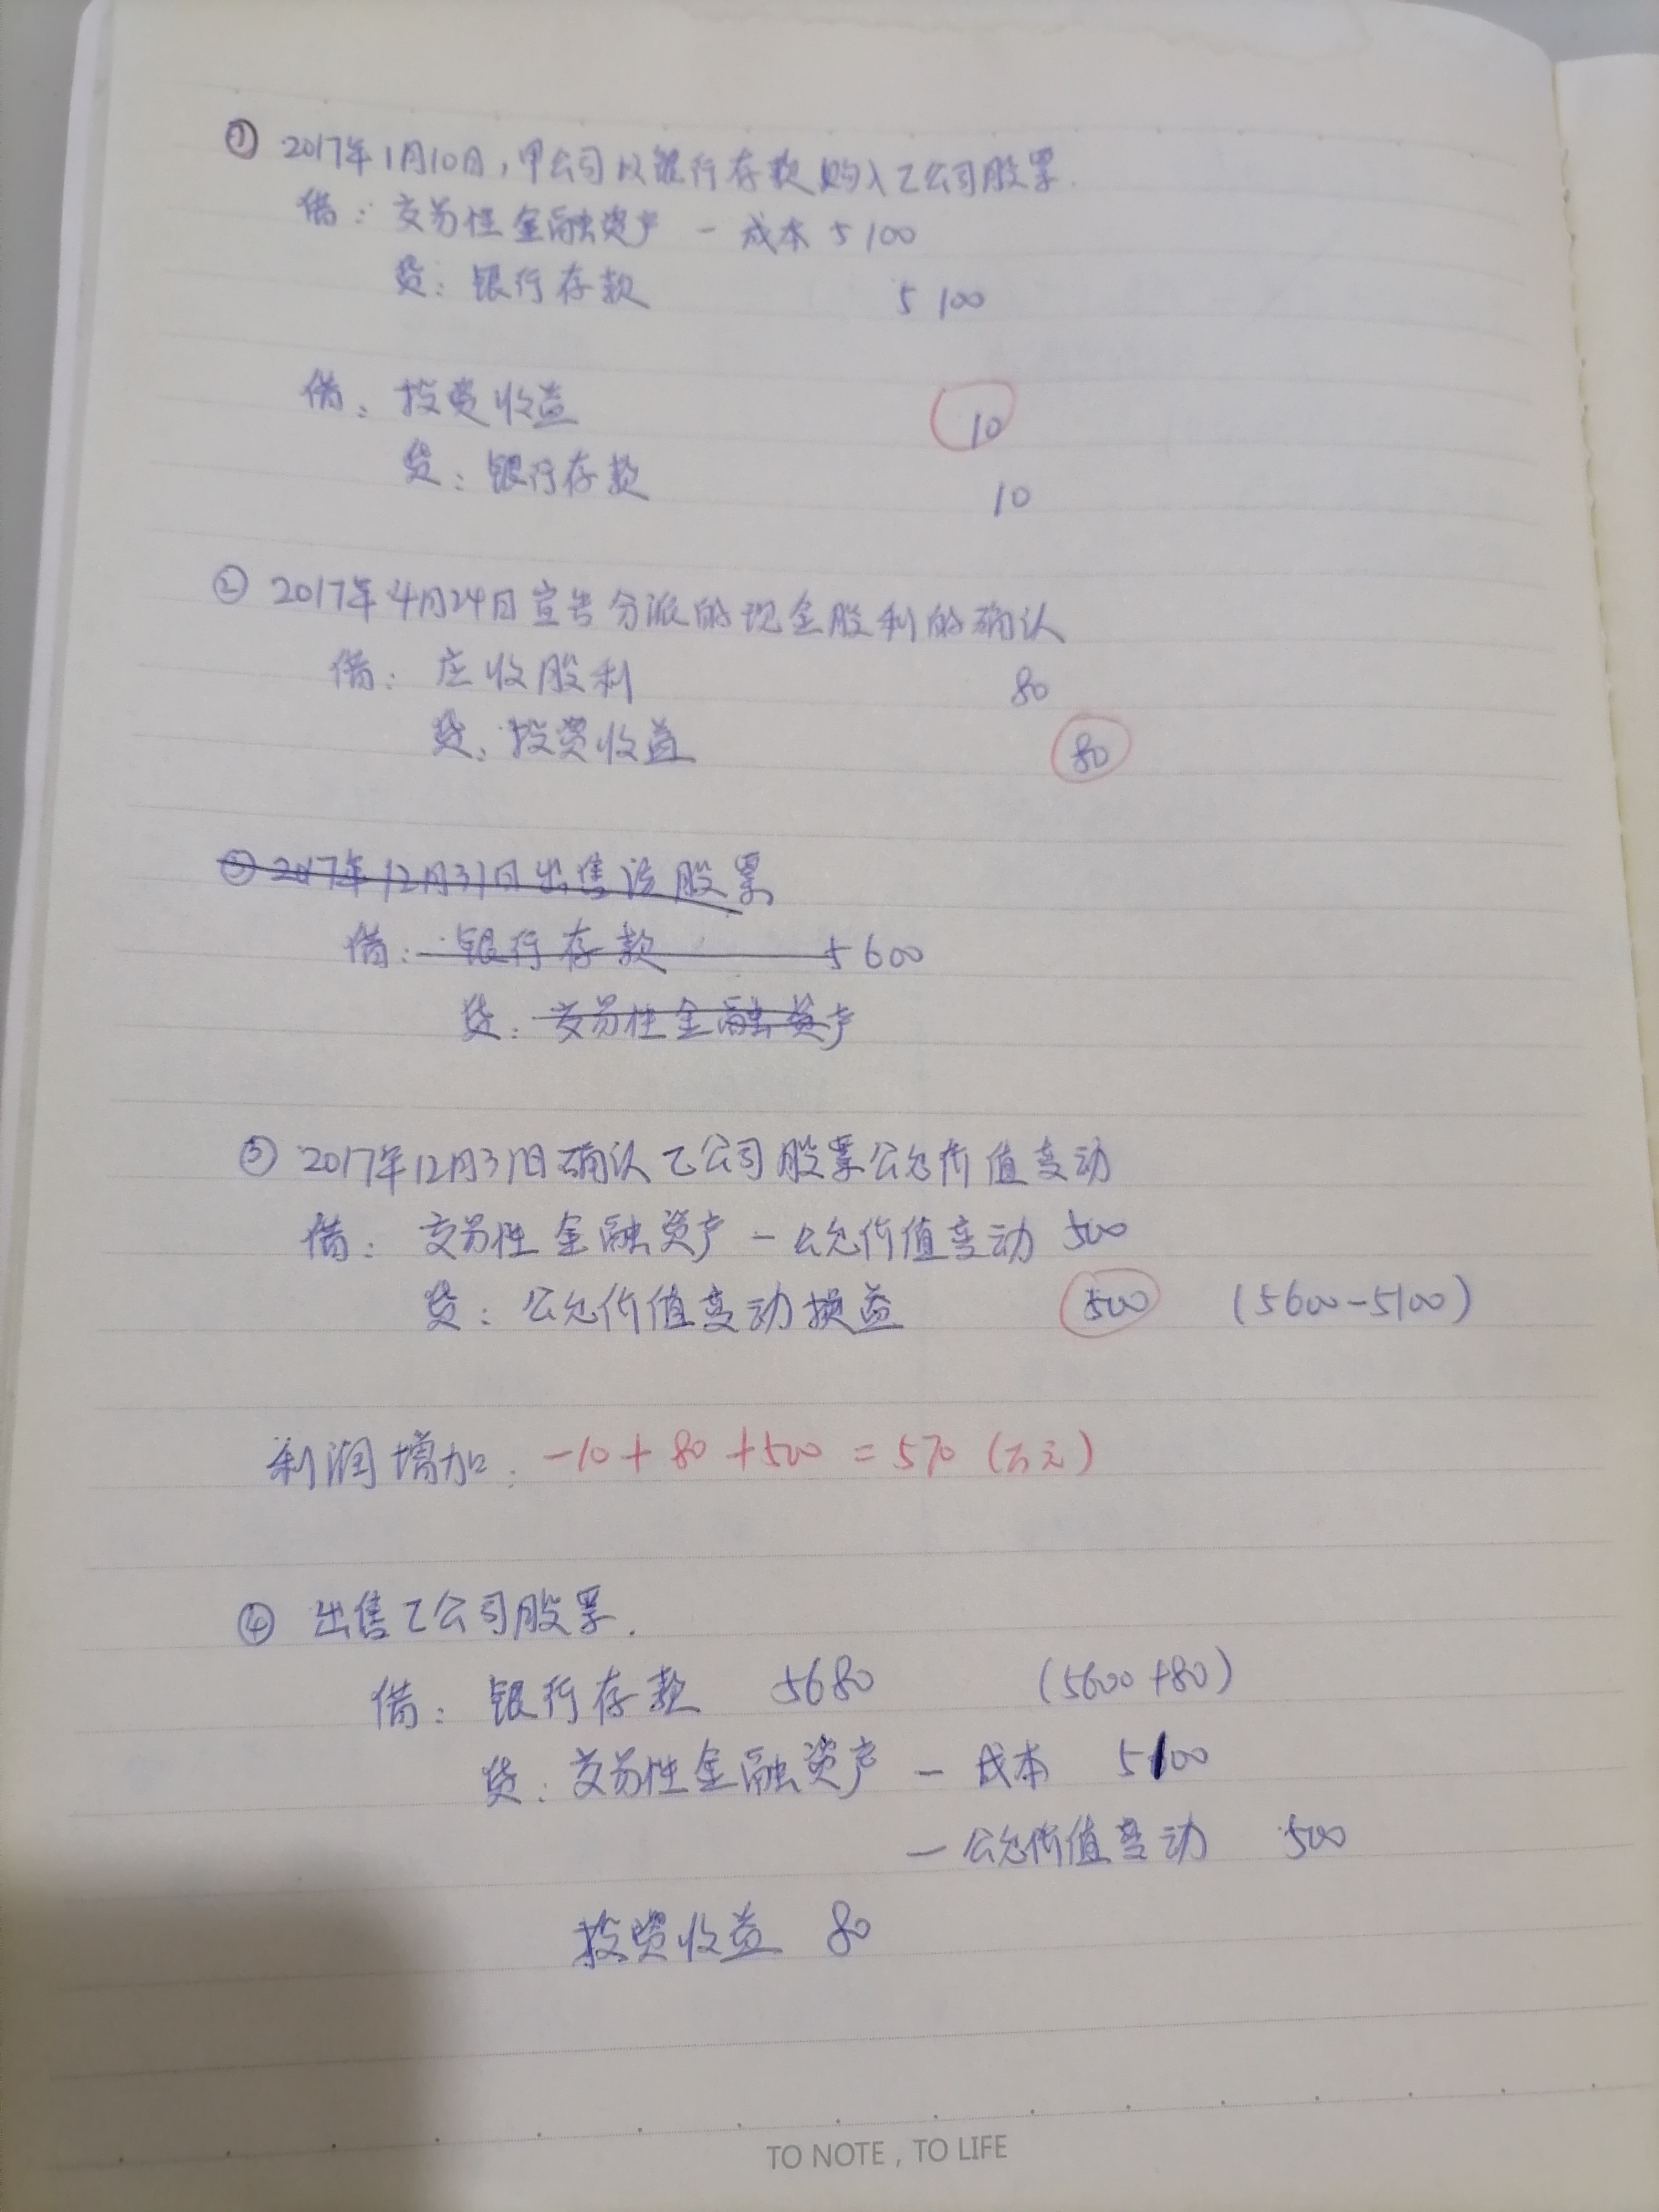 ① 2017年1月10日，甲公司以银行存款购入乙公司股票.
借：交易性金融资产 - 成本 5100
贷：银行存款 5100
借：投资收益 10
贷：银行存款 10
② 2017年4月24日宣告分派的现金股利的确认
借：应收股利 80
贷：投资收益 80
③ 2017年12月31日出售该股票
借：银行存款 5600
贷：交易性金融资产
③ 2017年12月31日确认乙公司股票公允价值变动
借：交易性金融资产 - 公允价值变动 500
贷：公允价值变动损益 500 (5600-5100)
利润增加：-10+80+500=570（万元）
④ 出售乙公司股票.
借：银行存款 5680 (5600+80)
贷：交易性金融资产 - 成本 5100
- 公允价值变动 500
投资收益 80
TO NOTE , TO LIFE